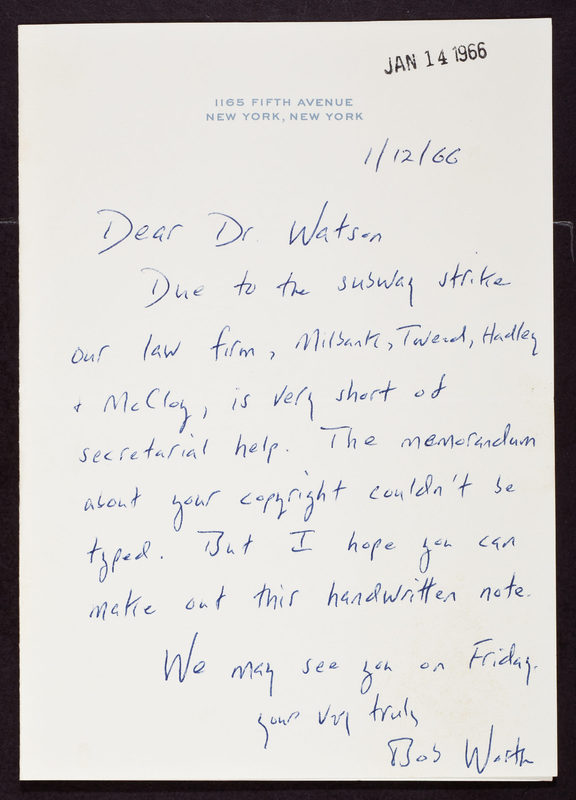 JAN 14 1966
1165 FIFTH AVENUE
NEW YORK, NEW YORK
1/12/66
Dear Dr. Watson
Due to the subway strike
our law firm, Milbank, Tweed, Hadley
& McCloy, is very short of
secretarial help. The memorandum
about your copyright couldn't be
typed. But I hope you can
make out this handwritten note.
We may see you on Friday.
yours very truly
Bob Worth